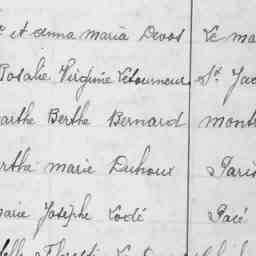 et anna maria Devos Le ma
Rosalie Virginie Letourneur St Jac
arthe Berthe Bernard mont
rthe marie Duhoux Paris
marie Josèphe Lodé Pacé